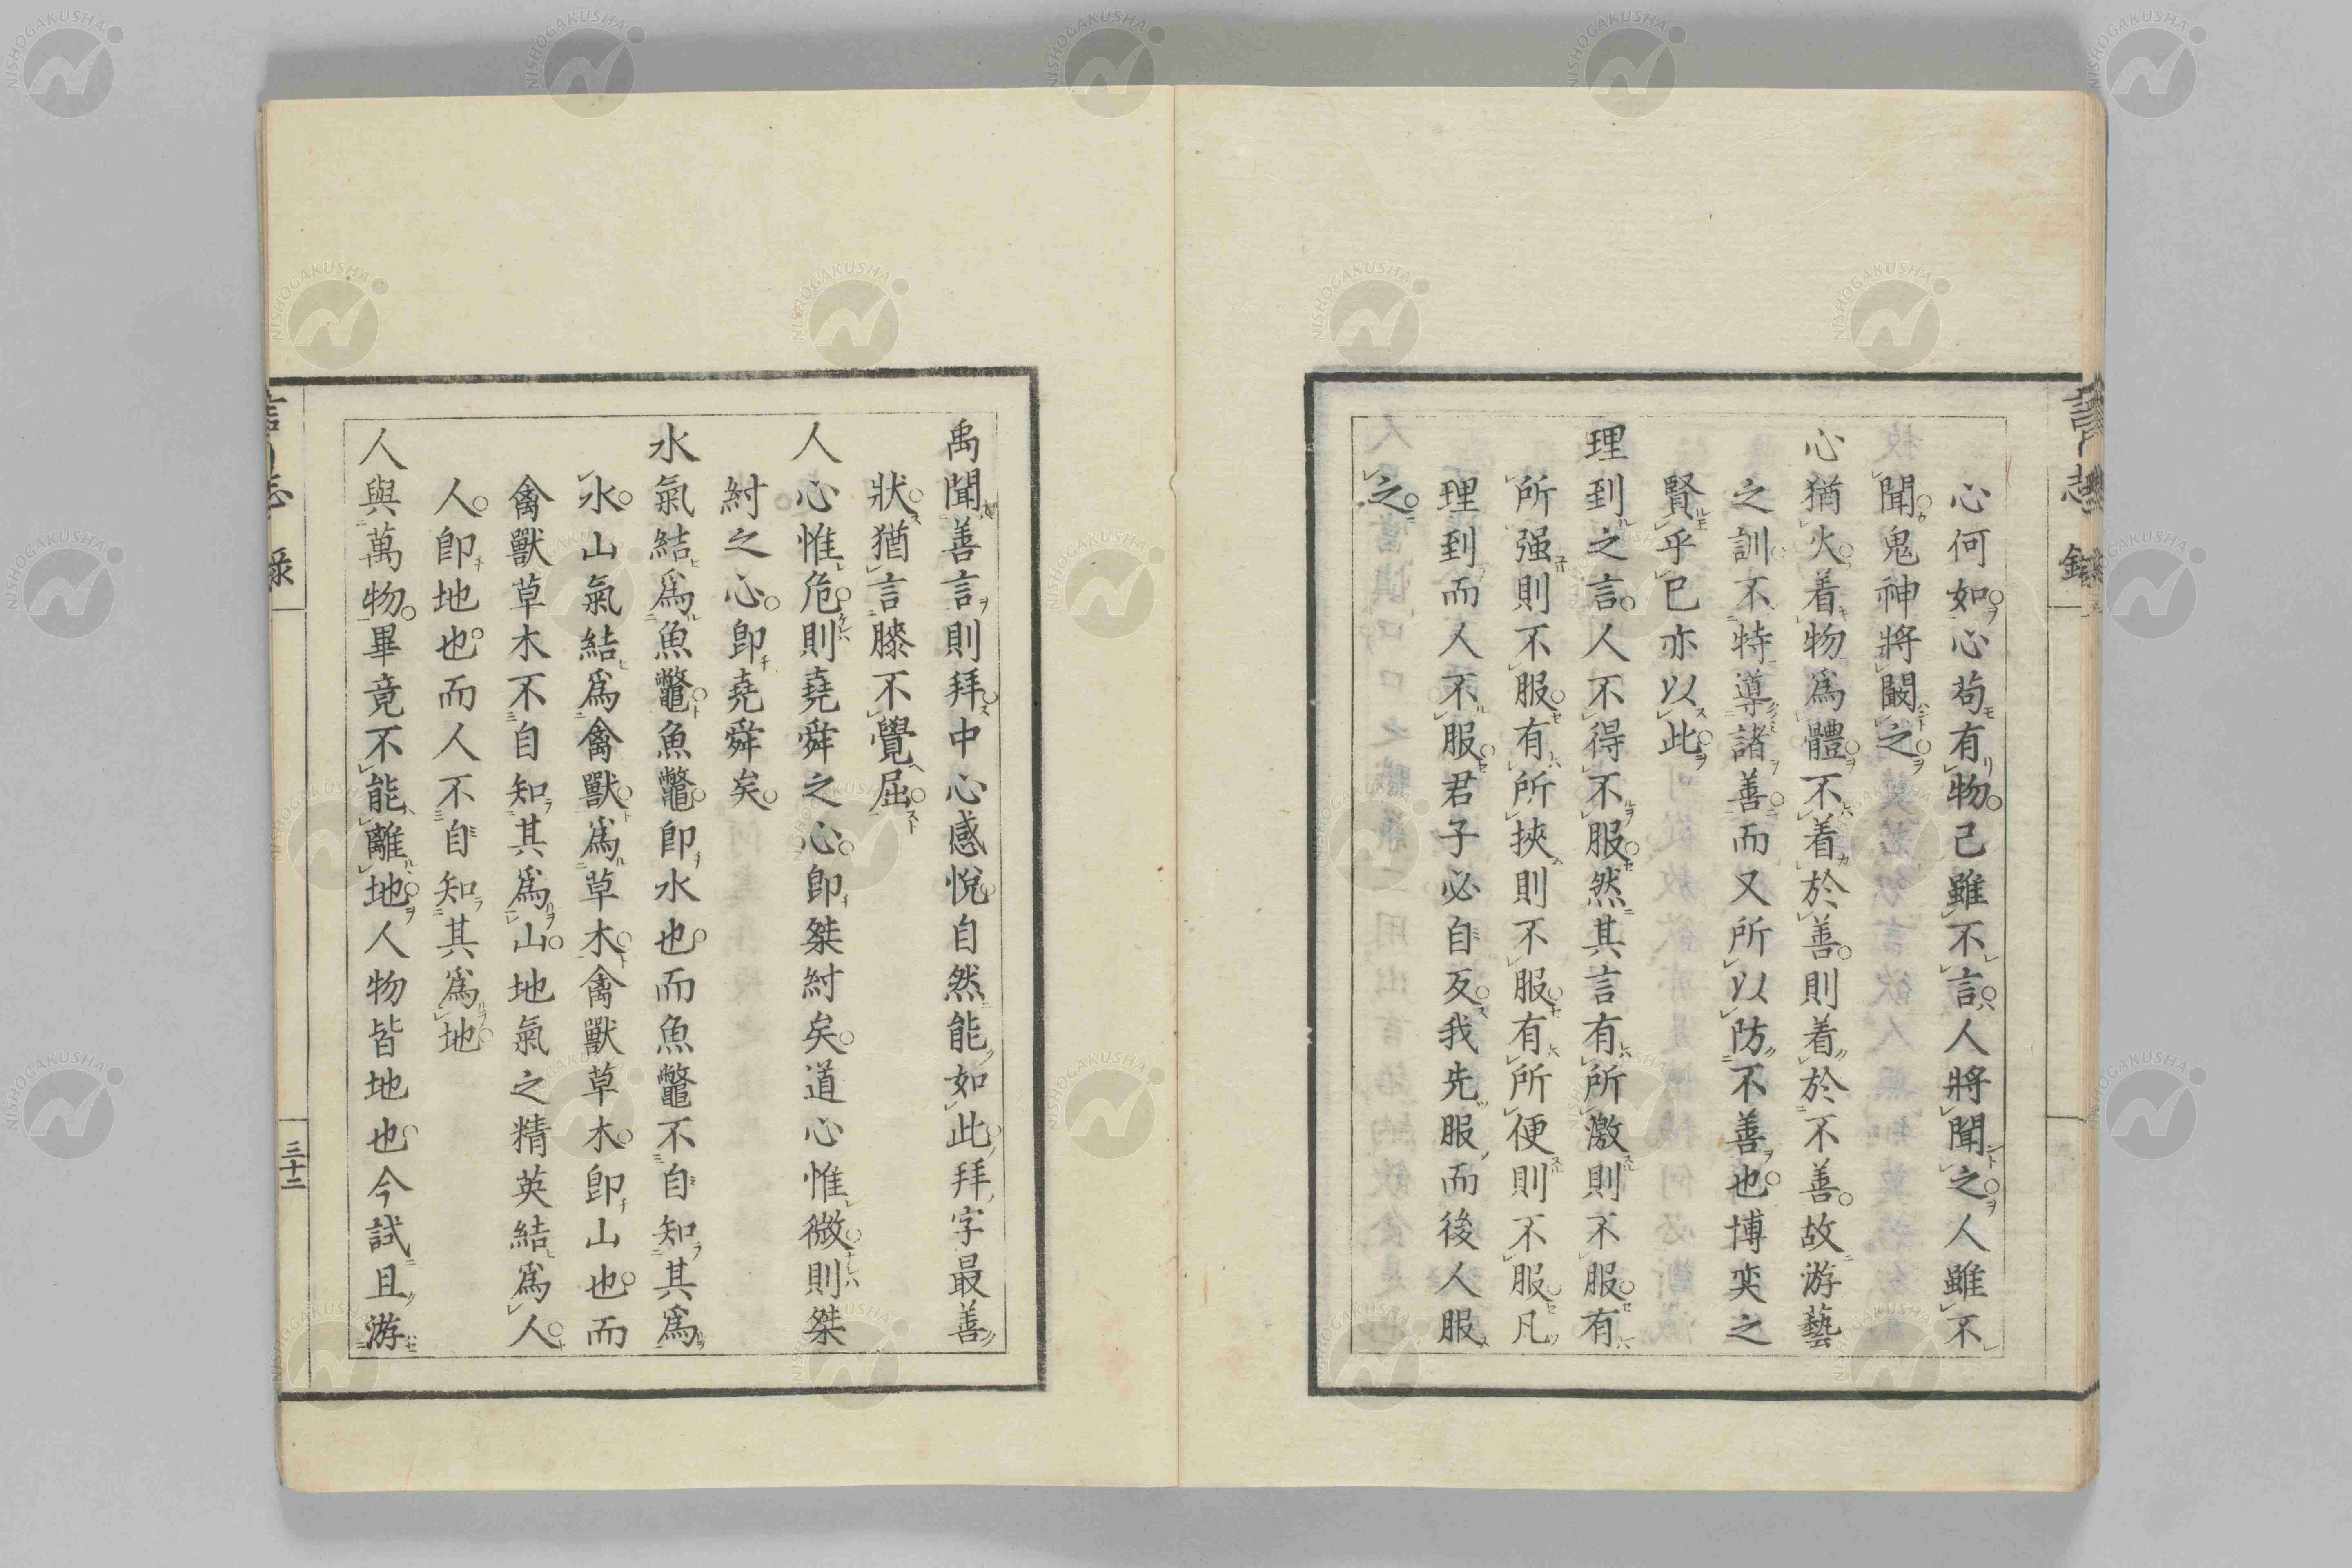 心何如心苟有物己雖不言人將聞之人雖不
聞鬼神將闞之
心猶火着物爲體不着於善則着於不善故游藝
之訓不特導諸善而又所以防不善也博奕之
賢乎已亦以此
理到之言人不得不服然其言有所激則不服有
所强則不服有所挾則不服有所便則不服凡
理到而人不服君子必自反我先服而後人服
之
禹聞善言則拜中心感悅自然能如此拜字最善
狀猶言膝不覺屈
人心惟危則堯舜之心卽桀紂矣道心惟微則桀
紂之心卽堯舜矣
水氣結爲魚鼈魚鼈卽水也而魚鼈不自知其爲
水山氣結爲禽獸爲草木禽獸草木卽山也而
禽獸草木不自知其爲山地氣之精英結爲人
人卽地也而人不自知其爲地
人與萬物畢竟不能離地人物皆地也今試且游
三十二
NISHOGAKUSHA